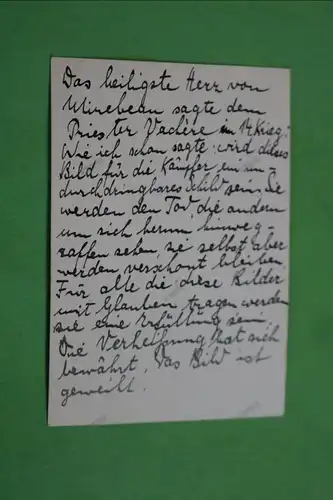 Das heiligste Herz von
Mirebeau sagte dem
Priester Vachère im 14 Krieg:
Wie ich schon sagte: wird dieses
Bild für die Kämpfer ein un-
durchdringbares Schild sein, sie
werden den Tod, die andern
um sich herum hinweg-
raffen sehen, sie selbst aber
werden verschont bleiben.
Für alle die diese Bilder
mit Glauben tragen werden
sie eine Erfüllung sein.
Die Verheissung hat sich
bewährt, das Bild ist
geweiht.